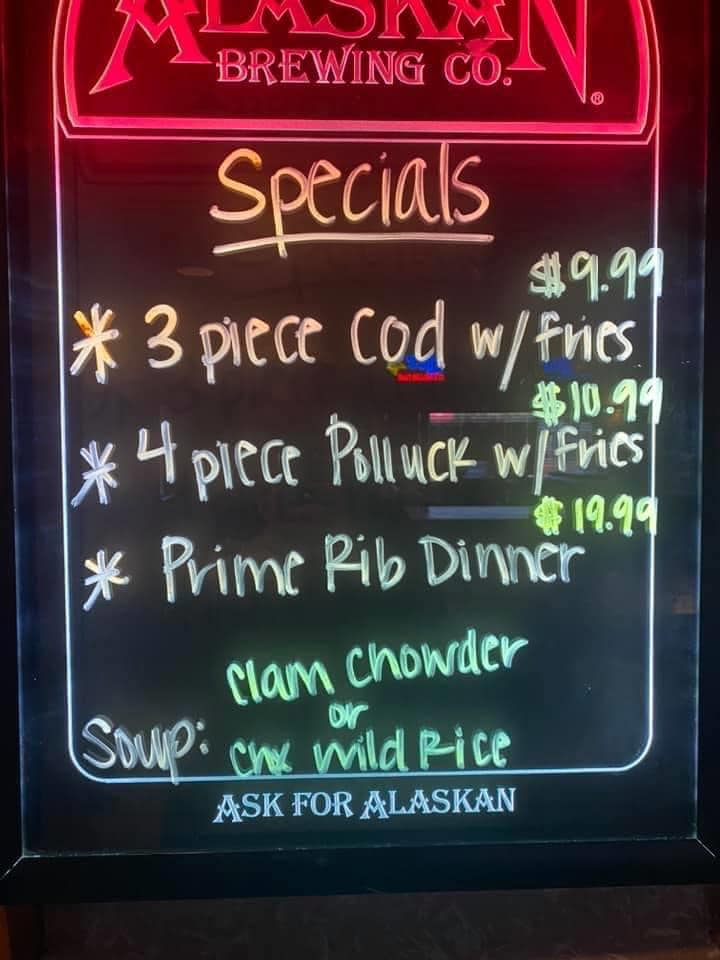 ALASKAN
BREWING CO.®
Specials
$9.99
* 3 piece Cod w/fries
$10.99
* 4 piece Polluck w/fries
$19.99
* Prime Rib Dinner
Clam Chowder
or
Soup: Chx Wild Rice
ASK FOR ALASKAN